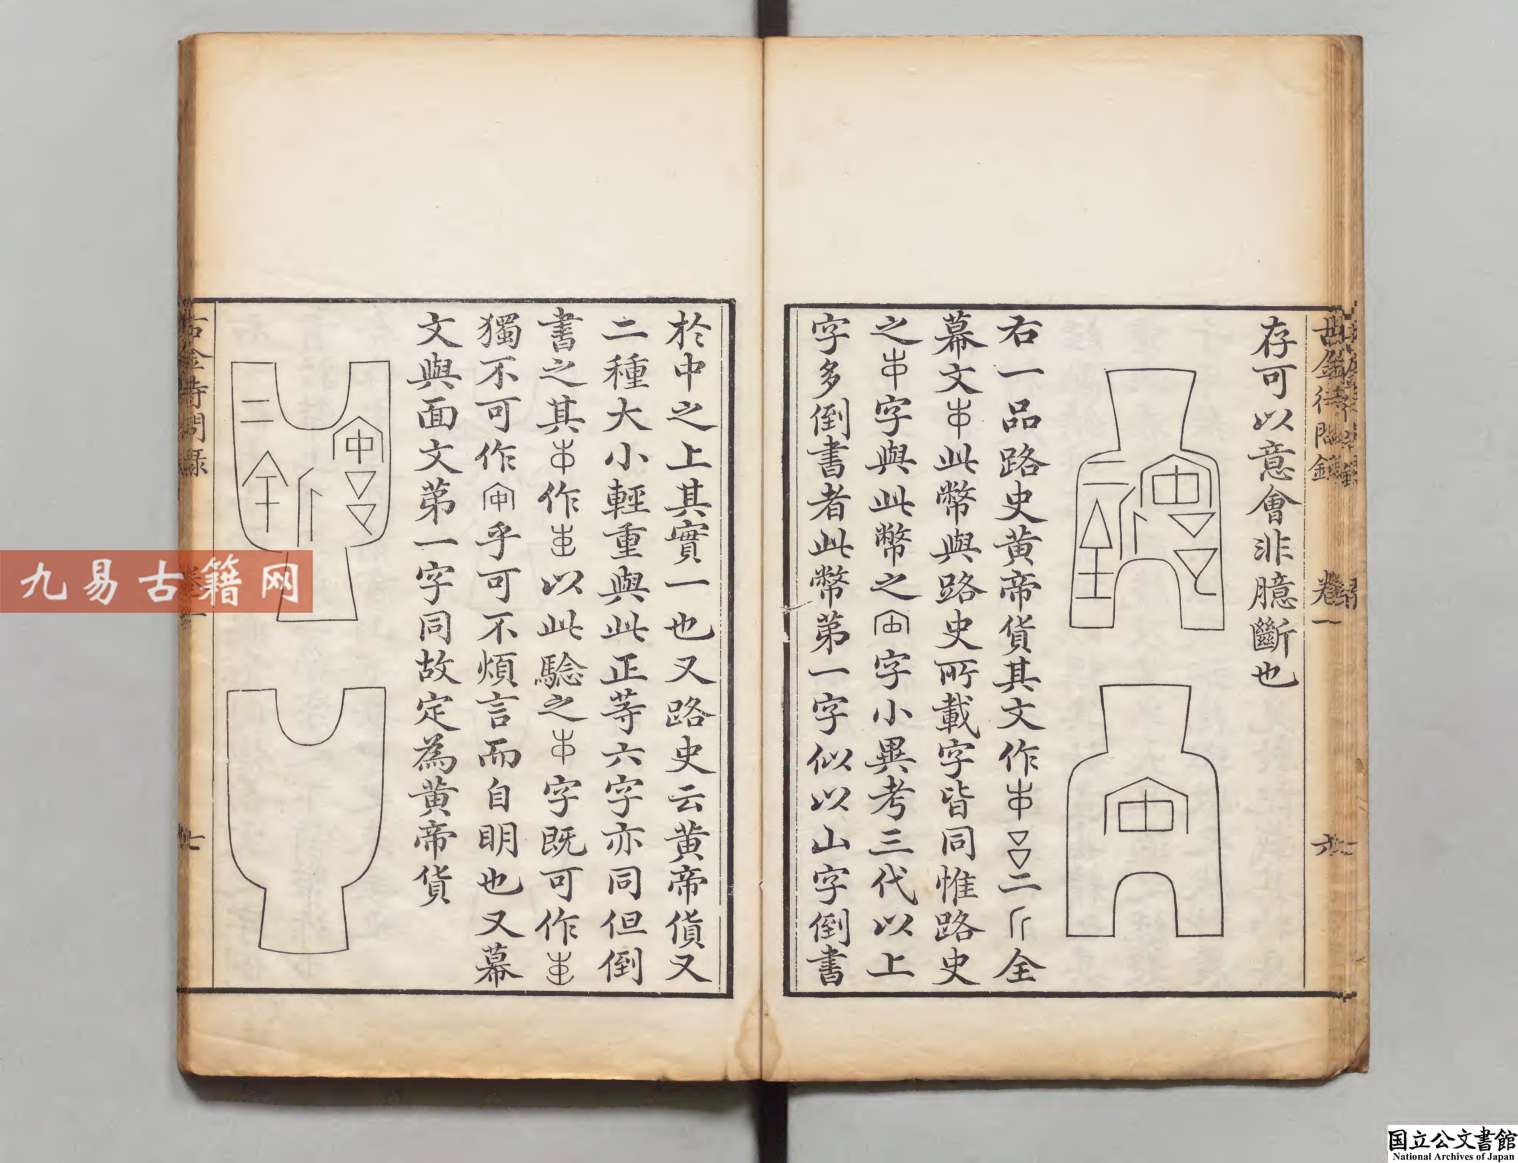 古金待問錄
卷一
六
存可以意會非臆斷也
右一品路史黃帝貨其文作二全
幕文此幣與路史所載字皆同惟路史
之字與此幣之字小異考三代以上
字多倒書者此幣第一字似以山字倒書
於中之上其實一也又路史云黃帝貨又
二種大小輕重與此正等六字亦同但倒
書之其作以此驗之字既可作
獨不可作乎可不煩言而自明也又幕
文與面文第一字同故定為黃帝貨
古金待問錄
卷一
七
九易古籍网
国立公文書館
National Archives of Japan